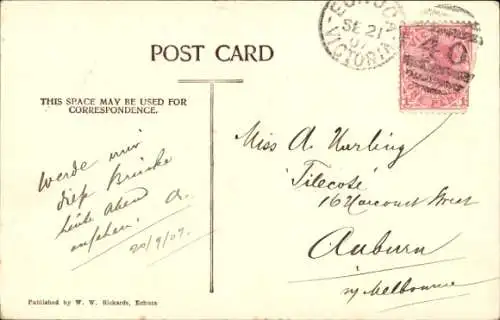 POST CARD
THIS SPACE MAY BE USED FOR
CORRESPONDENCE.
Werde mir
diese Brücke
heute abend
ansehen. A.
20/9/07.
ECHUCA
SE 21
07
VICTORIA
Miss A
"Tilecote"
162 Harcourt Street
Auburn
n/ Melbourne
Published by W. W. Rickards, Echuca